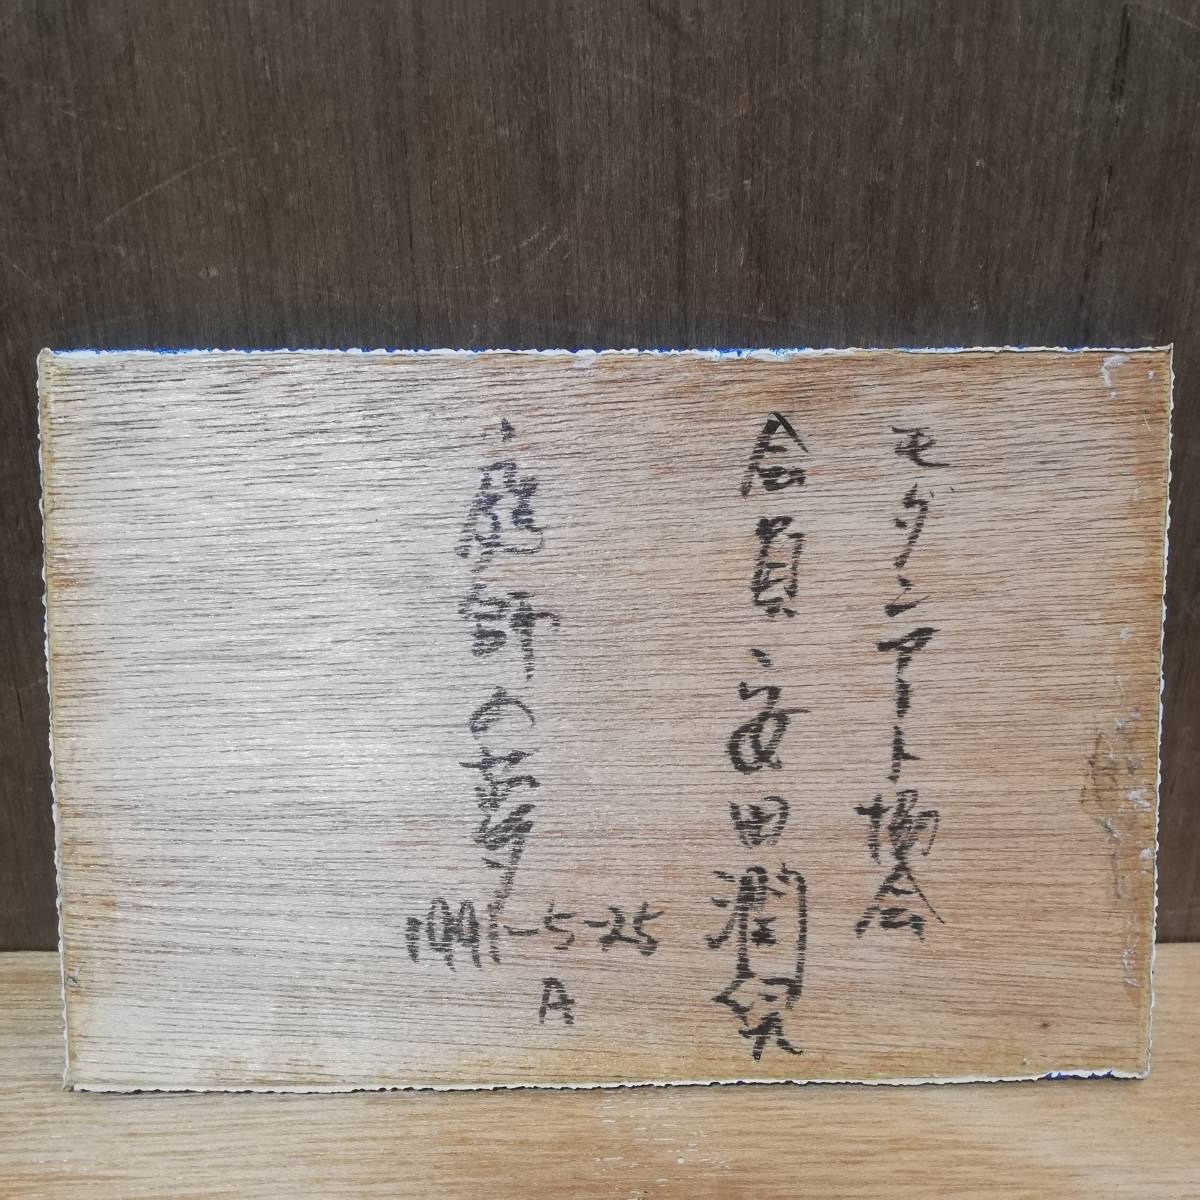 モダンアート協会
会員 安田潤
の夢
1991-5-25
A